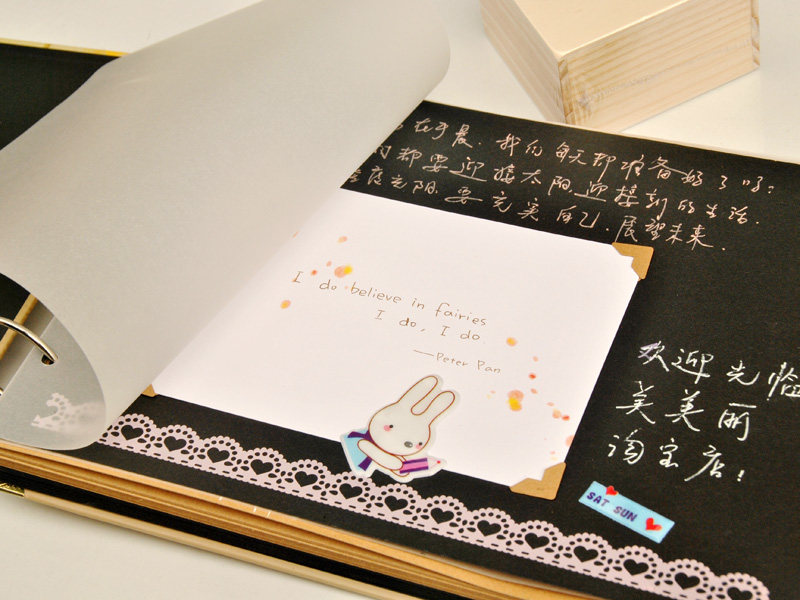 在于晨.我们每天都准备好了吗:
都要迎接太阳.迎接新的生活.
度光阳.要充实自己.展望未来.
I do believe in fairies
I do, I do.
—Peter Pan
欢迎光临
美美丽
淘宝店!
SAT SUN